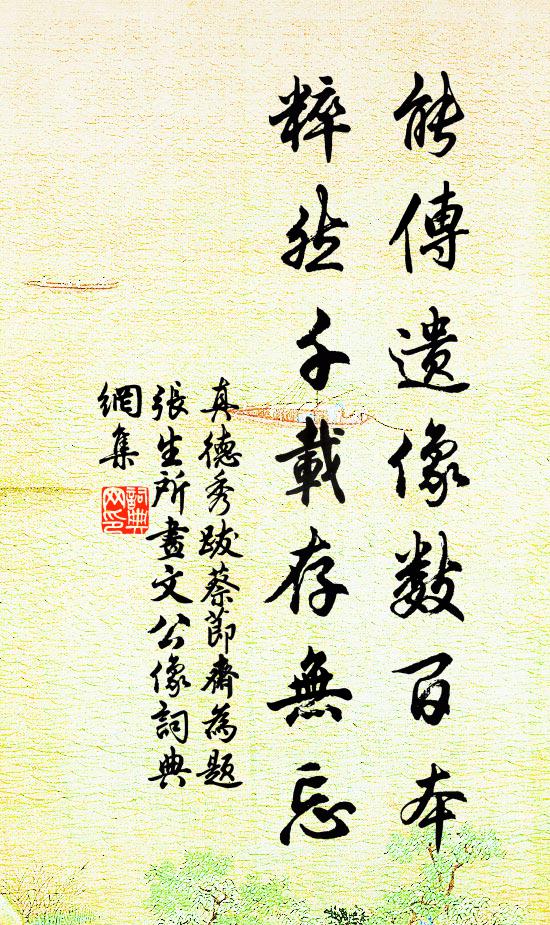 能傳遺像數百本
粹然千載存無忘
真德秀跋蔡節齋為題
張生所畫文公像詞典
網集
詞典
网印